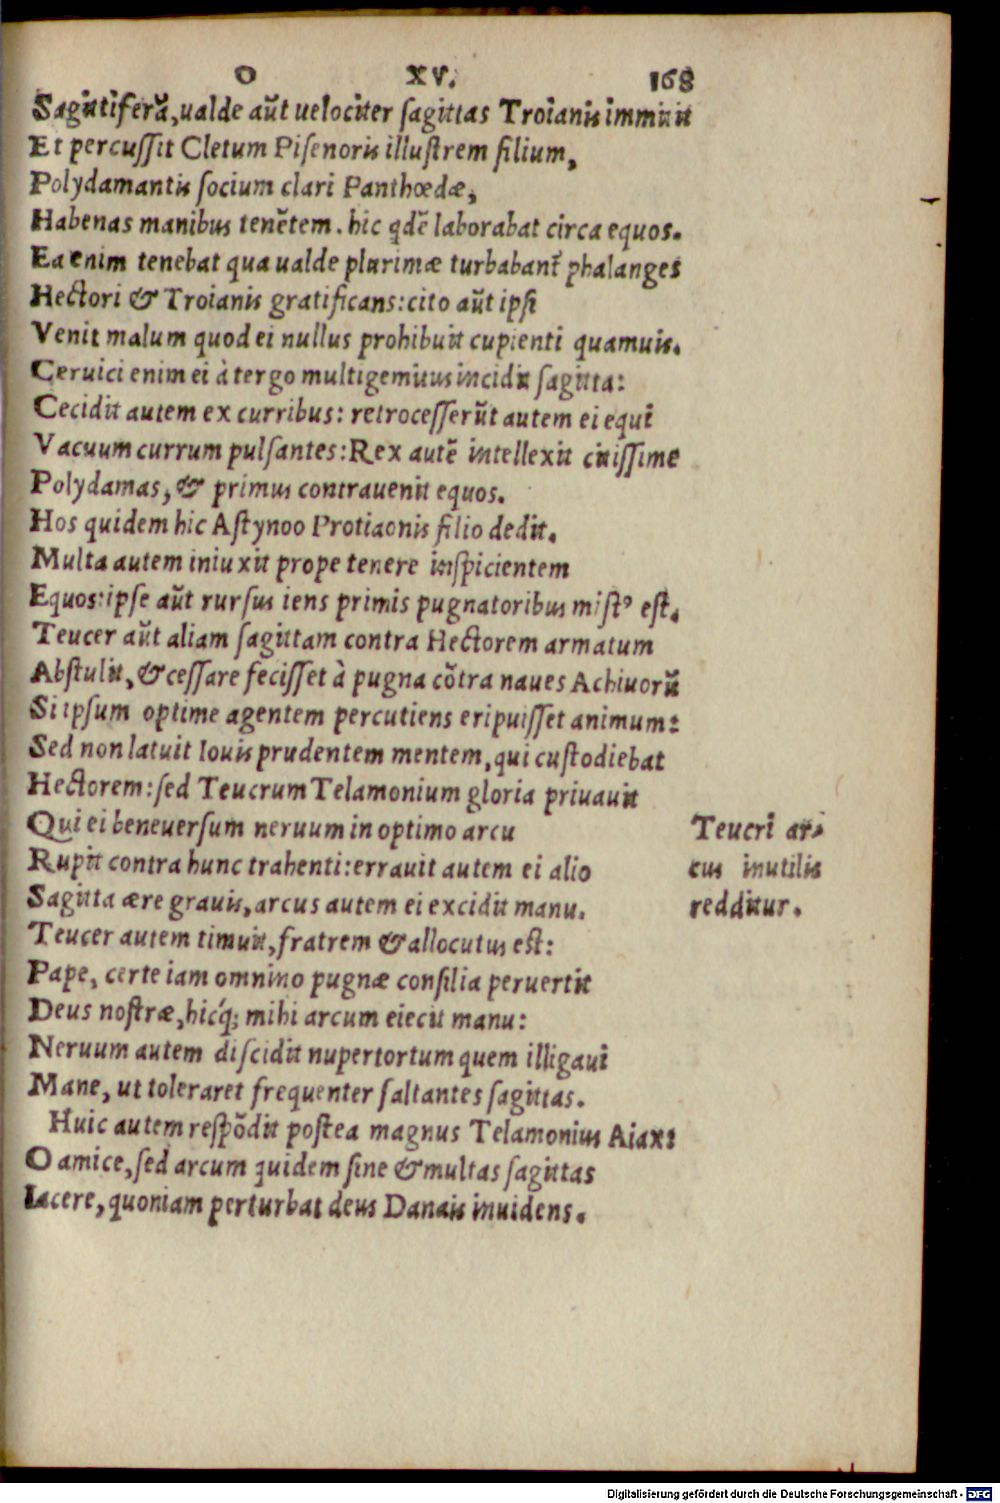 O XV. 168
Sagittiferã, ualde aũt uelociter sagittas Troianis immittit
Et percussit Cletum Pisenoris illustrem filium,
Polydamantis socium clari Panthœdæ,
Habenas manibus tenẽtem. hic qdẽ laborabat circa equos.
Ea enim tenebat qua ualde plurimæ turbabant᷑ phalanges
Hectori & Troianis gratificans: cito aũt ipsi
Venit malum quod ei nullus prohibuit cupienti quamuis.
Ceruici enim ei à tergo multigemitus incidit sagitta:
Cecidit autem ex curribus: retrocesserũt autem ei equi
Vacuum currum pulsantes: Rex autẽ intellexit citissime
Polydamas, & primus contrauenit equos.
Hos quidem hic Astynoo Protiaonis filio dedit.
Multa autem iniuxit prope tenere inspicientem
Equos: ipse aũt rursus iens primis pugnatoribus mistꝰ est.
Teucer aũt aliam sagittam contra Hectorem armatum
Abstulit, & cessare fecisset à pugna cõtra naues Achiuorũ
Si ipsum optime agentem percutiens eripuisset animum:
Sed non latuit Iouis prudentem mentem, qui custodiebat
Hectorem: sed Teucrum Telamonium gloria priuauit
Qui ei beneuersum neruum in optimo arcu
Rupit contra hunc trahenti: errauit autem ei alio
Sagitta ære grauis, arcus autem ei excidit manu.
Teucer autem timuit, fratrem & allocutus est:
Pape, certe iam omnino pugnæ consilia peruertit
Deus nostræ, hicq́; mihi arcum eiecit manu:
Neruum autem discidit nupertortum quem illigaui
Mane, ut toleraret frequenter saltantes sagittas.
Huic autem respõdit postea magnus Telamonius Aiax:
O amice, sed arcum quidem sine & multas sagittas
Iacere, quoniam perturbat deus Danais inuidens.
Teucri ar-
cus inutilis
redditur.
Digitalisierung gefördert durch die Deutsche Forschungsgemeinschaft - DFG